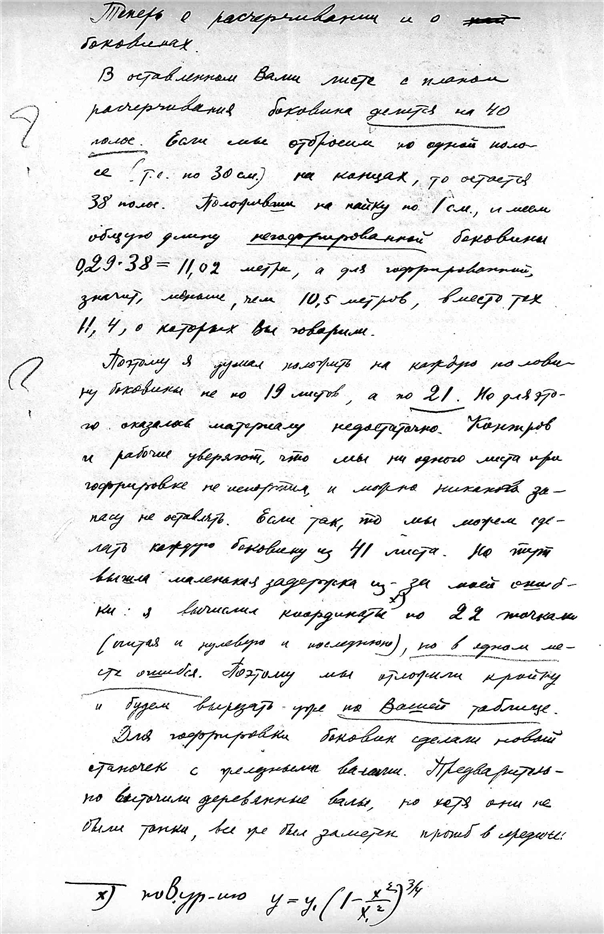 Теперь о расчерчивании и о
боковинах.
В оставленном Вами листе с планом
расчерчивания боковина делится на 40
полос. Если мы отбросим по одной поло-
се (т.е. по 30 см.) на концах, то остается
38 полос. Положивши на пайку по 1 см., имеем
общую длину негофрированной боковины
0,29·38 = 11,02 метра, а для гофрированной,
значит, меньше, чем 10,5 метров, вместо тех
11,4, о которых Вы говорили.
Поэтому я думал положить на каждую полови-
ну боковины не по 19 листов, а по 21. Но для это-
го оказалось материалу недостаточно.
и рабочие уверяют, что мы ни одного листа при
гофрировке не испортим, и можно никакого за-
пасу не оставлять. Если так, то мы можем сде-
лать каждую боковину из 41 листа. Но тут
вышла маленькая задержка из-за моей ошиб-
ки: я вычислил координаты x) по 22 точкам
(считая и нулевую и последнюю), но в одном ме-
сте ошибся. Поэтому мы отложили кройку
и будем вырезать уже по Вашей таблице.
Для гофрировки боковин сделали новый
станочек с железными валами. Предваритель-
но выточили деревянные валы, но хотя они не
были тонки, все же был заметен прогиб в середине.
x) по В. ур-ию y = y₁ (1 - x²/x₁²)^3/4